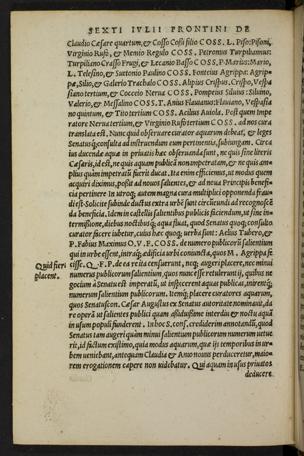 SEXTI IVLII FRONTINI DE
Claudio Cæsare quartum, & Cosso Cossi filio COSS. L. Piso: Pisoni,
Virginio Rufo, & Memio Regulo COSS. Petronius Turpilianus:
Turpiliano Crasso Frugi, & Lecanio Basso COSS. P. Marius: Mario,
L. Telesino, & Suetonio Paulino COSS. Fonteius Agrippa: Agrip-
pæ, Silio, & Galerio Trachalo COSS. Alipius Crispus: Crispo, Vespa
siano tertium, & Cocceio Nerua COSS. Pompeius Siluius: Siluino,
Valerio, & Messalino COSS. T. Anius Flauianus: Flauiano, Vespasia
no quintum, & Tito tertium COSS. Acilius Auiola. Post quem impe
ratore Nerua tertium, & Virginio Rufo tertium COSS. ad nos cura
translata est. Nunc quid obseruare curator aquarum debeat, & leges
Senatusq; consulta ad instruendum eum pertinentia, subiungam. Circa
ius ducendæ aquæ in priuatis hæc obseruanda sunt, ne quis sine literis
Cæsaris, id est, ne quis aquam publicam non impetratam, & ne quis am-
plius quàm impetrauit fuerit ducat. Ita enim efficiemus, ut modus quem
acquiri diximus, possit ad nouos salientes, & ad noua Principis benefi-
cia pertinere. In utroq; autem magna cura multiplici opponenda frau
di est. Solicitè subinde ductus extra urbem sunt circūeundi ad recognoscē
da beneficia. Idem in castellis salientibus publicis faciendum, ut sine in-
termissione, diebus noctibusq; aqua fluat, quod Senatus quoq; consulto
curator facere iubetur, cuius hæc quoq; uerba sunt: Aelius Tubero, &
P. Fabius Maximus O, V. F. COSS. de numero publicorū salientium
qui in urbe essent, intraq; ædificia urbi coniuncta, quos M. Agrippa fe
Quid fieri cisset. Q. F. P. de ea re ita censuerunt, neq; augeri placere, nec minui
placent. numerus publicorum salientium, quos nunc esse retulerunt ij, quibus ne
gocium à Senatu est imperatū, ut inspicerent aquas publicas, inirentq;
numerum salientium publicorum. Itemq; placere curatores aquarum,
quos Senatuscon. Cæsar Augustus ex Senatus autoritate nominauit, da
re operā ut salientes publici quàm assiduissimè interdiu & noctu aquā
in usum populi funderent. In hoc S. conf. crediderim annotandū, quod
Senatus tam augeri quàm minui salientium publicorum numerum uetue
rit, id factum existimo, quia modus aquarum, quæ ijs temporibus in ur-
bem ueniebant, antequam Claudia & Anio nouus perduceretur, maio-
rem erogationem capere non uidebatur. Qui aquam in usus priuatos
deducere